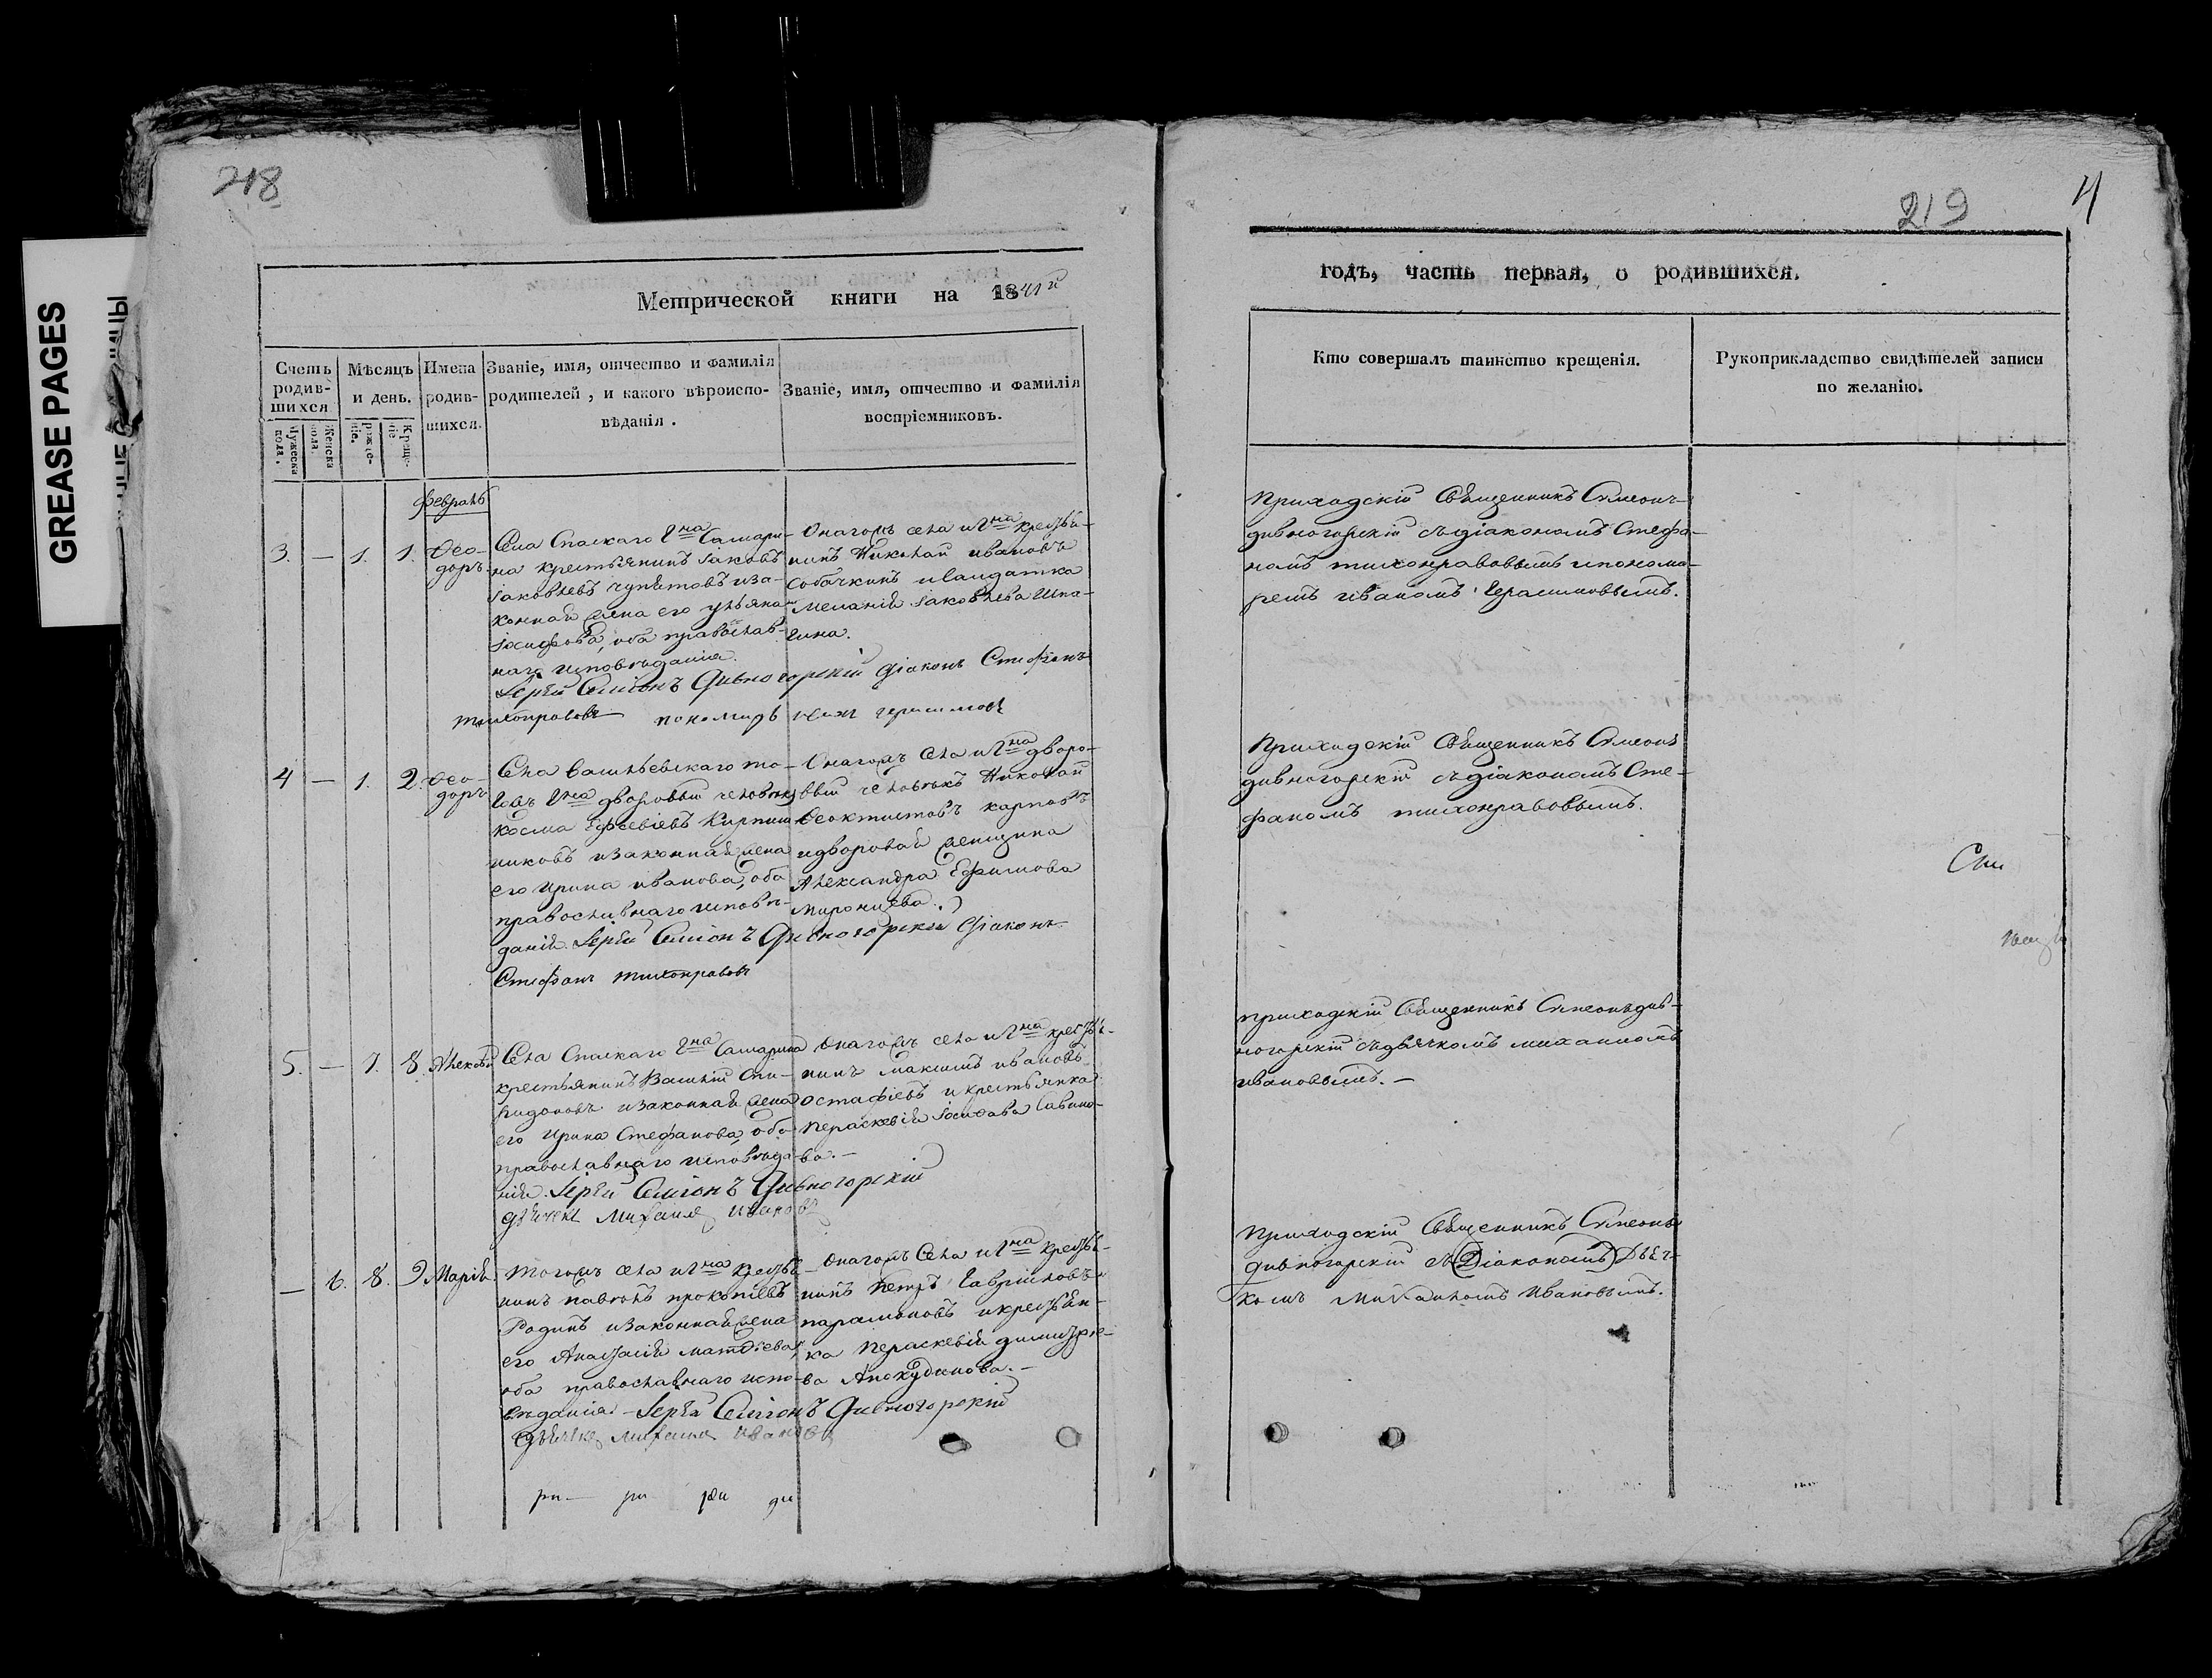 218
219
4
GREASE PAGES
Метрической книги на 1841й
годъ, часть первая, о родившихся.
Счетъ родив-шихся
Мужеска пола.
Женска пола.
Мѣсяцъ и день.
рожде-нія.
Креще-нія
Имена родив-шихся.
Званіе, имя, отчество и фамилія
родителей, и какого вѣроиспо-
вѣданія.
Званіе, имя, отчество и фамилія
воспріемниковъ.
Кто совершалъ таинство крещенія.
Рукоприкладство свидѣтелей записи
по желанію.
февраль
3. — 1. 1. Ѳео-
доръ
Села Спаскаго Гна Самари-
на крестьянинъ Іаковъ
Іаковлевъ изза-
конная жена его Ульяна
Іосифова, оба православ-
наго исповѣданія.
Іерей Симеонъ Дивногорскій Діаконъ Стефанъ
Тихонравовъ пономарь Иванъ Герасимовъ
Онагожъ села и Гна крестья-
нинъ Николай Ивановъ
Собачкинъ и солдатка
Меланія Іаковлева Шпа-
гина.
Приходскій Священникъ Симеонъ
Дивногорскій съ діакономъ Стефа-
номъ Тихонравовымъ и понома-
ремъ Иваномъ Герасимовымъ.
4 — 1. 2. Ѳео-
доръ
Села Васильевскаго то-
гожъ Гна дворовый человѣкъ
Косма Евсевіевъ Кирпич-
никовъ изаконная жена
его Ирина Иванова, оба
православнаго исповѣ-
данія. Іерей Симеонъ Дивногорскій Діаконъ
Стефанъ Тихонравовъ
Онагожъ Села и Гна дворо-
вый человѣкъ Николай
Ѳеоктистовъ Карповъ
идворовая женщина
Александра Ефимова
Миронцева.
Приходскій Священникъ Симеонъ
Дивногорскій съ діакономъ Сте-
фаномъ Тихонравовымъ.
5. — 7. 8. Алексѣй
Села Спаскаго Гна Самарина
крестьянинъ Василій Спи-
ридоновъ изаконная жена
его Ирина Стефанова, оба
православнаго исповѣда-
нія. Іерей Симеонъ Дивногорскій
Дьячекъ Михаилъ Ивановъ
Онагожъ села и Гна крестья-
нинъ Максимъ Ивановъ
Остафіевъ и крестьянка
Пераскевія Іосифова Савино-
ва. —
Приходскій Священникъ Симеонъ Див-
ногорскій съ дьячкомъ Михаиломъ
Ивановымъ. —
— 6. 8. 9 Марія.
Тогожъ села и Гна крестья-
нинъ Павелъ Прокопіевъ
Родинъ изаконная жена
его Анастасія Матѳіева,
оба православнаго испо-
вѣданія — Іерей Симеонъ Дивногорскій
Дьячекъ Михаилъ Ивановъ
Онагожъ Села и Гна крестья-
нинъ Петръ Гавріиловъ
Парамоновъ и крестьян-
ка Пераскевія Димитріе-
ва Анокудинова. —
Приходскій Священникъ Симеонъ
Дивногорскій съ (Діакономъ) Дьяч-
комъ Михаиломъ Ивановымъ.